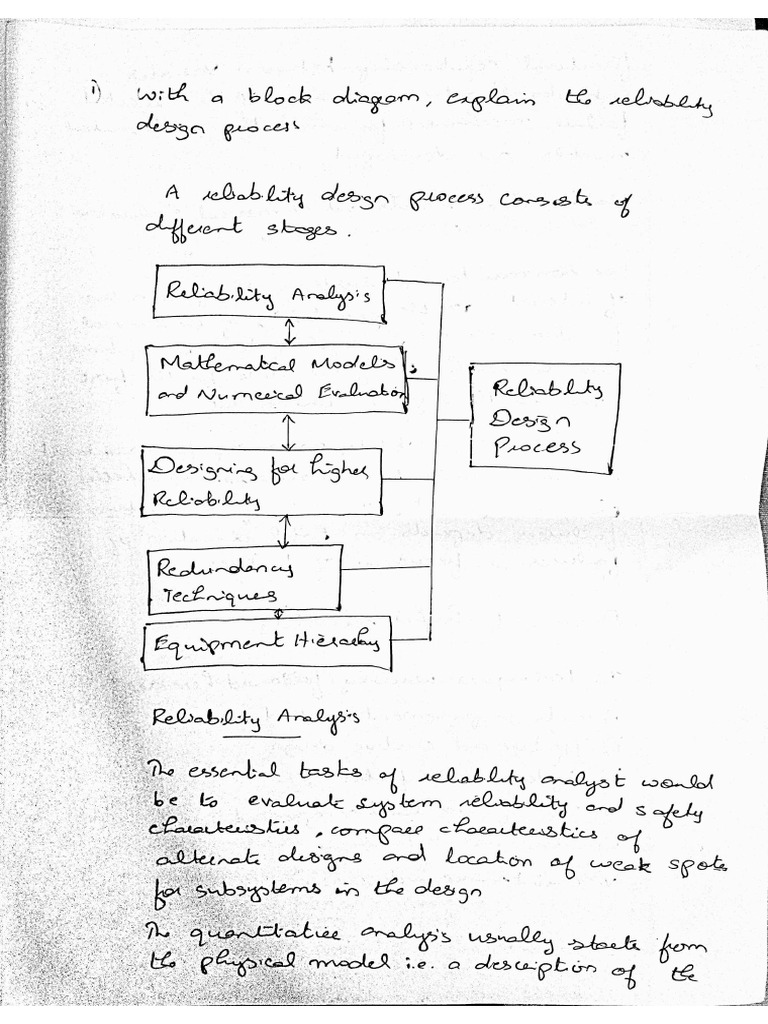 i) With a block diagram, explain the reliability
design process
A reliability design process consists of
different stages.
Reliability Analysis
Mathematical Models
and Numerical Evaluation
Designing for higher
Reliability
Redundancy
Techniques
Equipment Hierarchy
Reliability
Design
Process
Reliability Analysis
The essential tasks of reliability analyst would
be to evaluate system reliability and safety
characteristics, compare characteristics of
alternate designs and location of weak spots
for subsystems in the design
The quantitative analysis usually starts from
the physical model i.e. a description of the